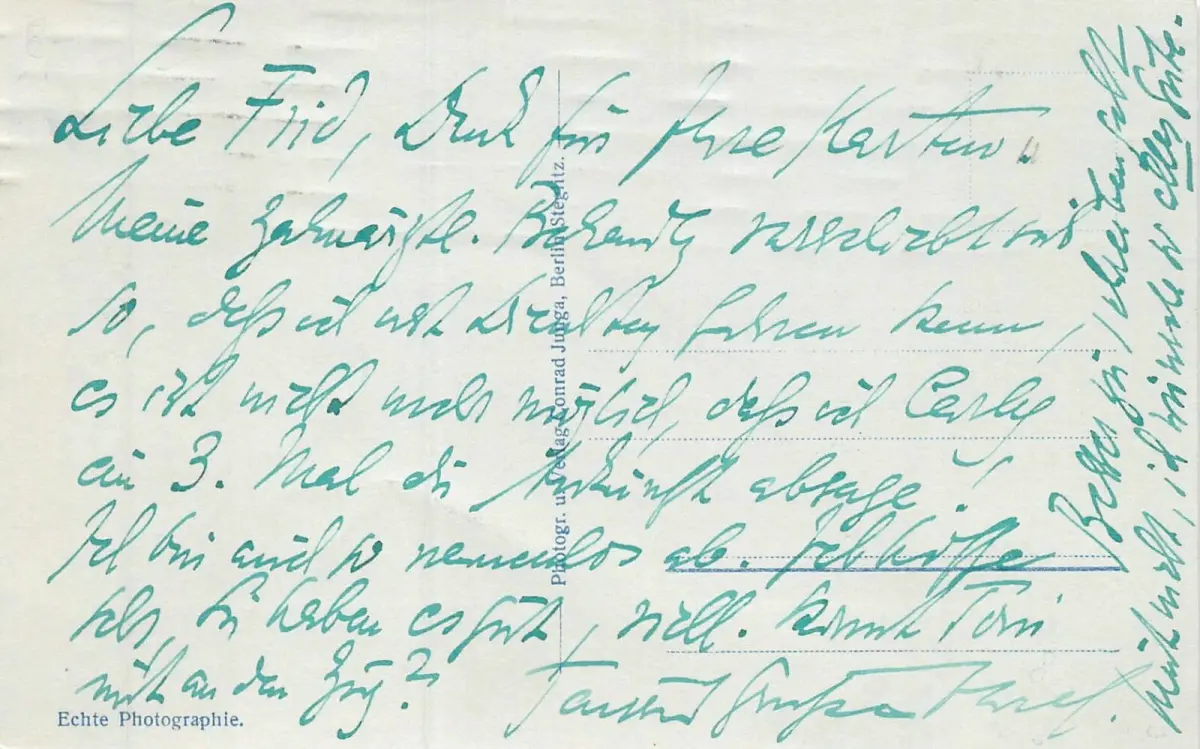 Liebe Frid, Dank für Ihre Karten.
Meine zahnärztl. Behandlg verschiebt sich
so, daß ich erst Dienstag fahren kann,
es ist nicht mehr möglich, daß ich
ein 3. Mal die Ankunft absage.
Ich bin auch so namenlos ab. Ich hoffe
sehr, Sie haben es gut, viell. kommt Toni
mit an den Zug?
Tausend Grüße Ihre
nicht, ich wünsche so alles Gute.
Photogr. u. Verlag Conrad Junga, Berlin-Steglitz.
Echte Photographie.